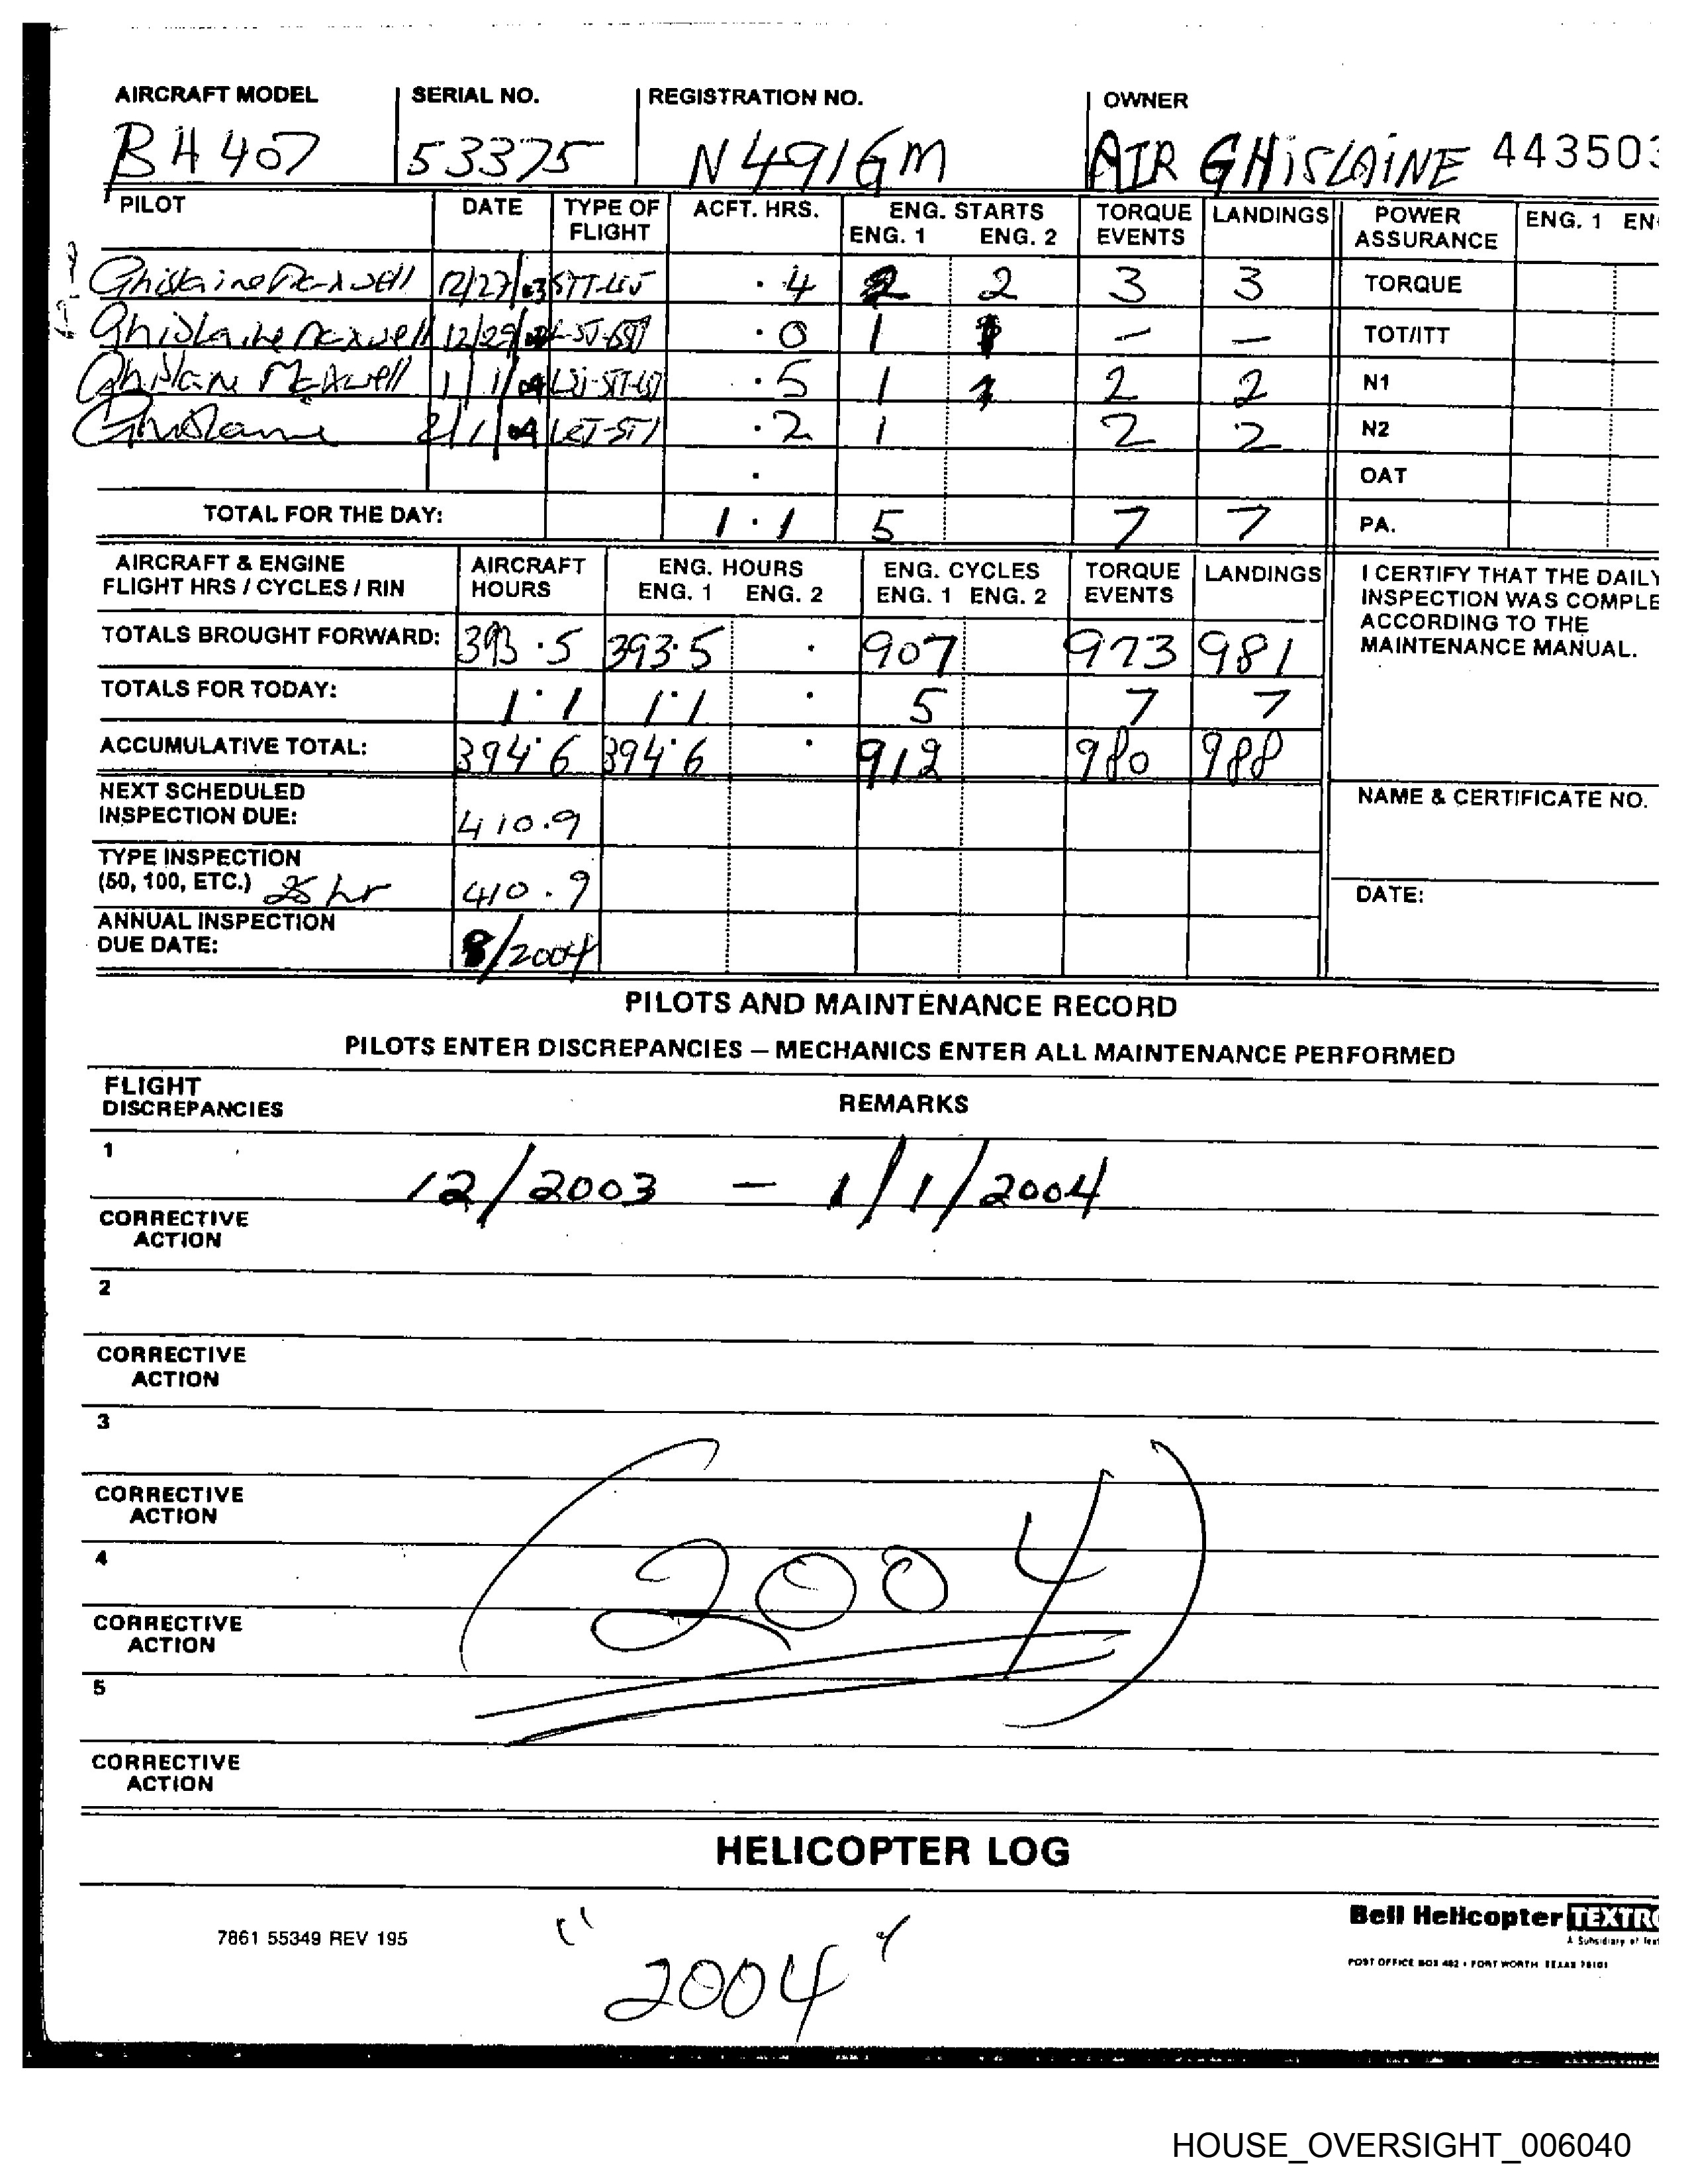 AIRCRAFT MODEL SERIAL NO. REGISTRATION NO. OWNER
BH 407 53375 N491GM AIR GHISLAINE 443503
PILOT DATE TYPE OF FLIGHT ACFT. HRS. ENG. STARTS ENG. 1 ENG. 2 TORQUE EVENTS LANDINGS POWER ASSURANCE ENG. 1 EN
Ghislaine Maxwell 12/27/03 STT-LSJ .4 2 2 3 3 TORQUE
Ghislaine Maxwell 12/29/ .0 1 — — TOT/ITT
Ghislaine Maxwell 1/1/04 LSJ-STT-LSJ .5 1 1 2 2 N1
Ghislaine 2/1/04 .2 1 2 2 N2
. OAT
TOTAL FOR THE DAY: 1.1 5 7 7 PA.
AIRCRAFT & ENGINE FLIGHT HRS / CYCLES / RIN AIRCRAFT HOURS ENG. HOURS ENG. 1 ENG. 2 ENG. CYCLES ENG. 1 ENG. 2 TORQUE EVENTS LANDINGS
I CERTIFY THAT THE DAILY
INSPECTION WAS COMPLE
ACCORDING TO THE
MAINTENANCE MANUAL.
TOTALS BROUGHT FORWARD: 393.5 393.5 . 907 973 981
TOTALS FOR TODAY: 1.1 1.1 . 5 7 7
ACCUMULATIVE TOTAL: 394.6 394.6 . 912 980 988
NEXT SCHEDULED
INSPECTION DUE: 410.9
NAME & CERTIFICATE NO.
TYPE INSPECTION
(50, 100, ETC.) 25 hr 410.9
DATE:
ANNUAL INSPECTION
DUE DATE: 8/2004
PILOTS AND MAINTENANCE RECORD
PILOTS ENTER DISCREPANCIES – MECHANICS ENTER ALL MAINTENANCE PERFORMED
FLIGHT
DISCREPANCIES REMARKS
1
12/2003 – 1/1/2004
CORRECTIVE
ACTION
2
CORRECTIVE
ACTION
3
CORRECTIVE
ACTION
4
(2004)
CORRECTIVE
ACTION
5
CORRECTIVE
ACTION
HELICOPTER LOG
7861 55349 REV 195
Bell Helicopter TEXTRO
A Subsidiary of Tex
POST OFFICE BOX 482 • FORT WORTH TEXAS 76101
"2004"
HOUSE_OVERSIGHT_006040